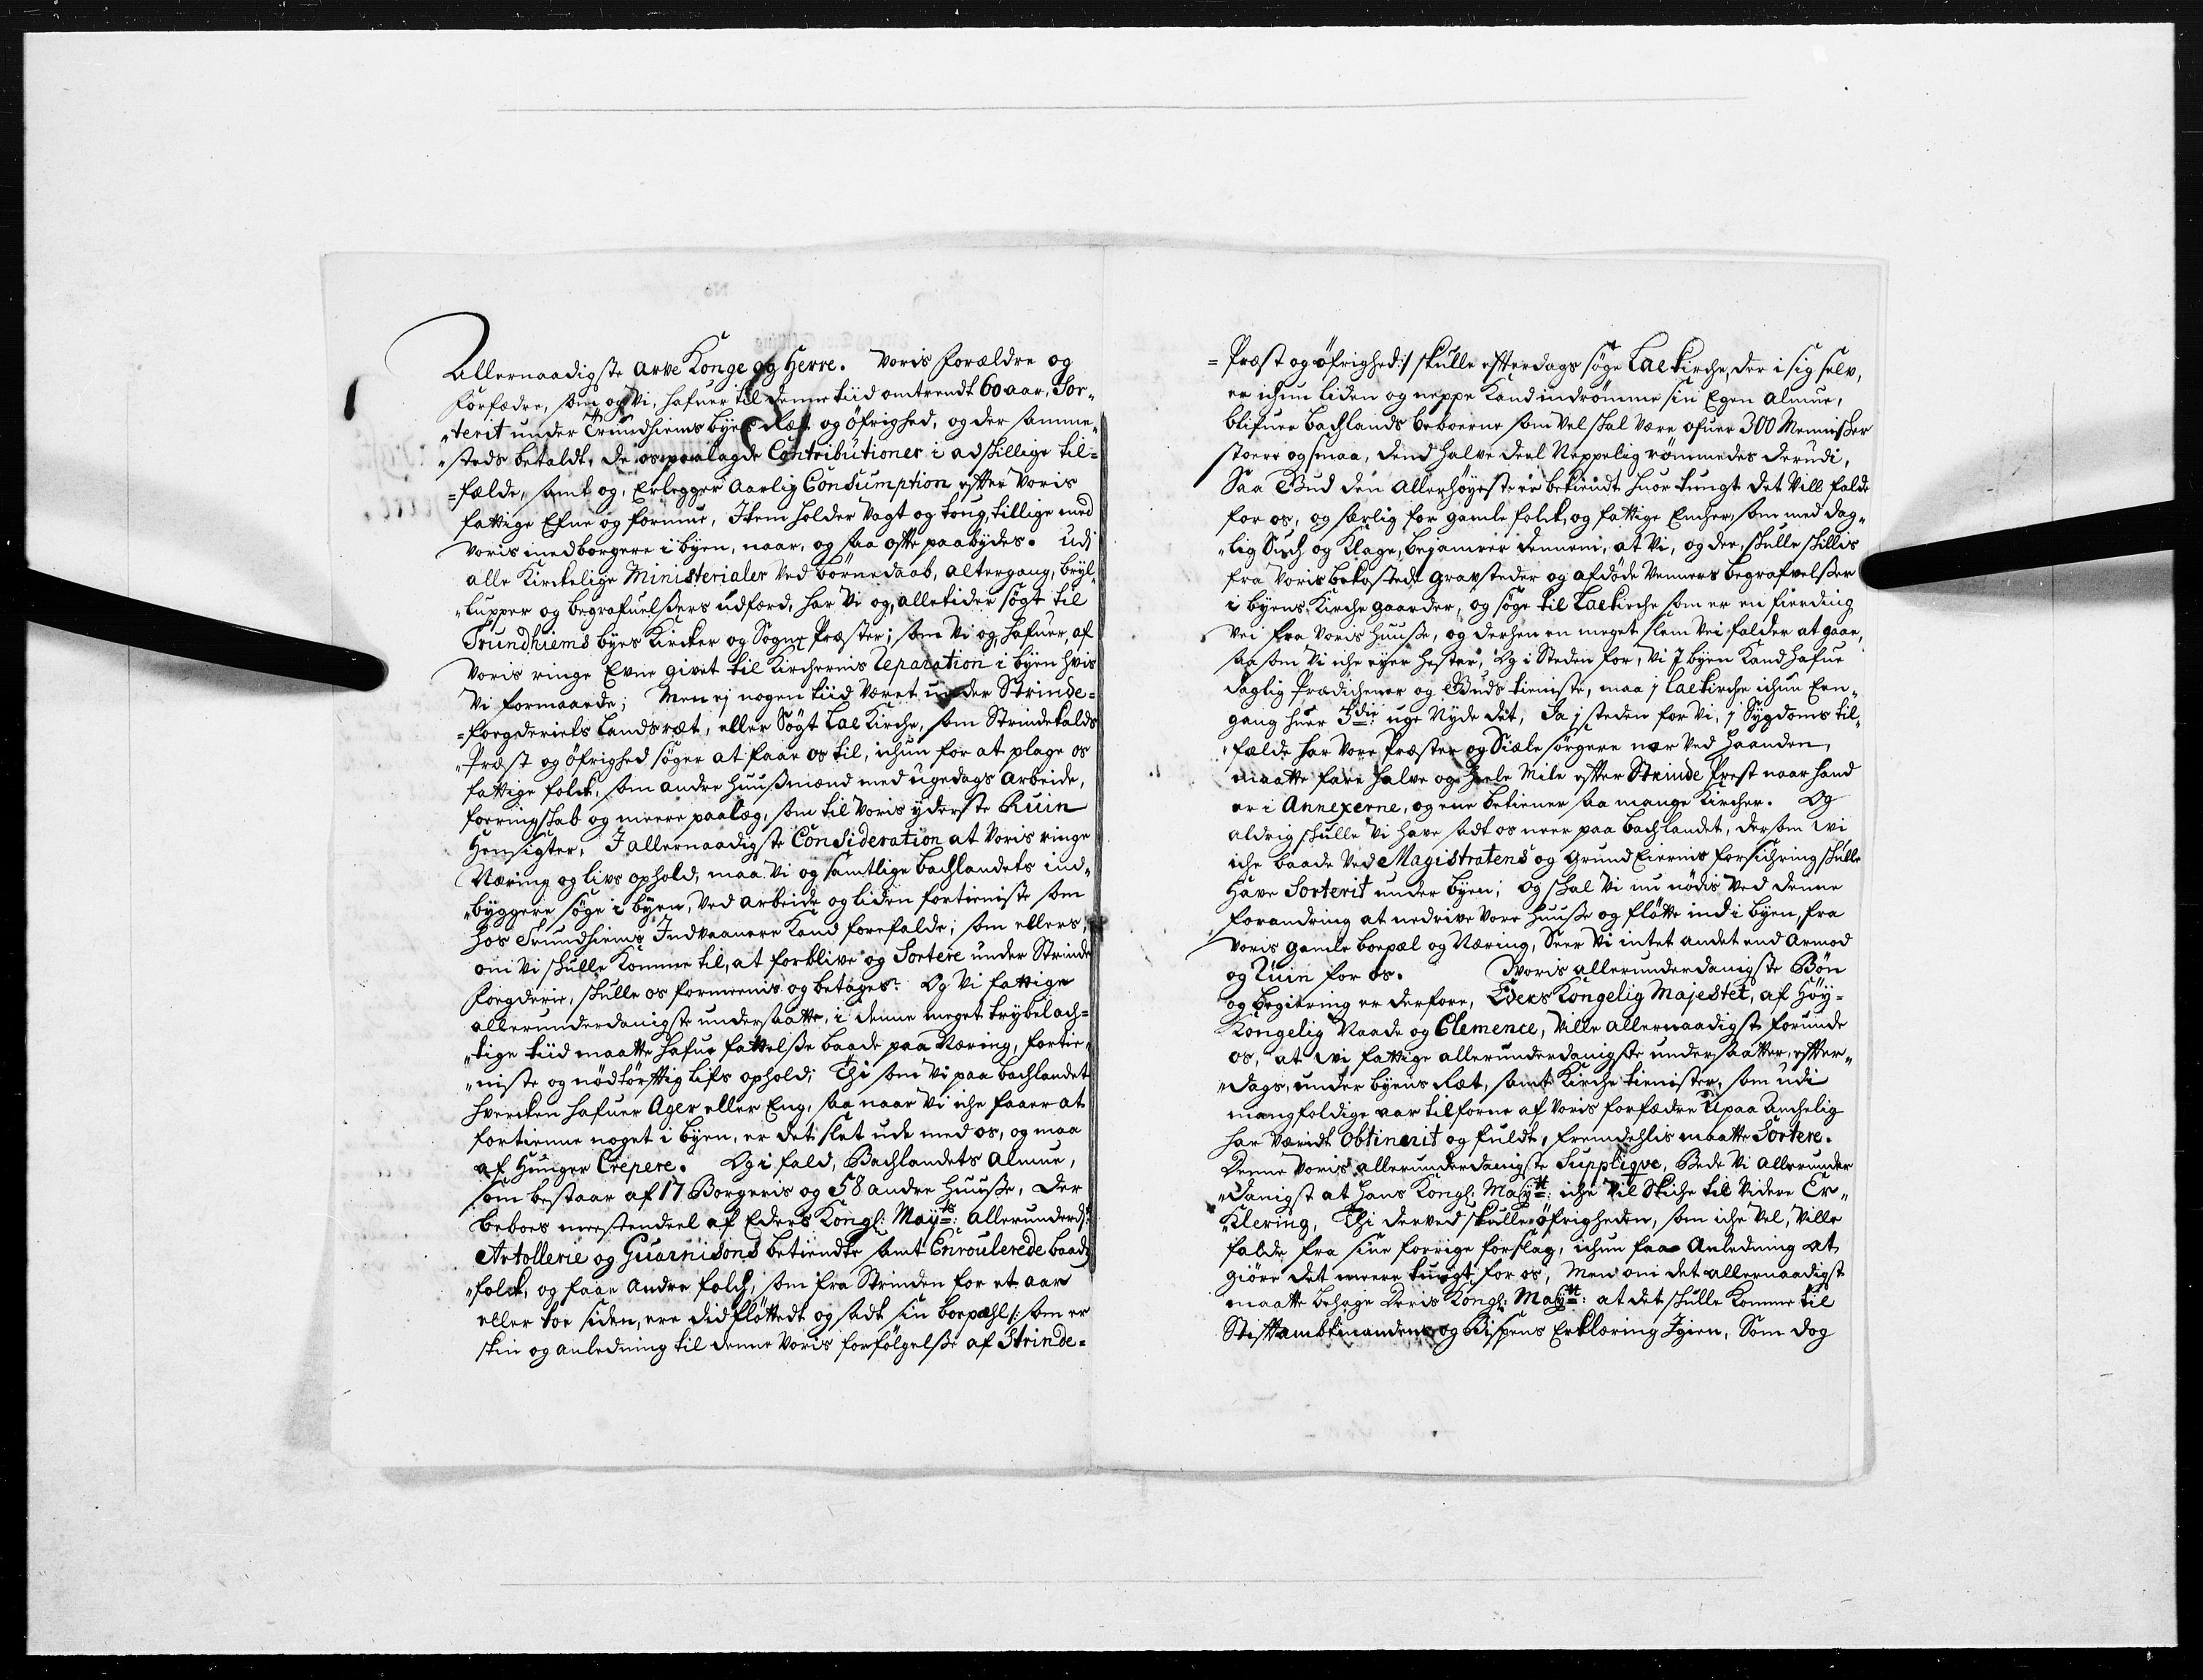 Allernaadigste Arve Konge og Herre. Voris Forældre og
Forfædre, som og Vi, hafuer til denne tiid omtrendt 60 aar, Sor„
„terit under Trundhiems byes Ræt og öfrighed, og der samme„
„steds betaldt, de os paalagde Contributioner i adskillige til=
=fælde, samt og, Erlegger Aarlig Consumption efter Voris
fattige Efne og formue, Item holder Vagt og toug, tillige med
Voris medborgere i byen, naar, og saa ofte paabydes. Udi
alle Kirckelige Ministerialer Ved börnedaab, altergang, bryl„
„lupper og begrafuelßers udfærd, har Vi og, alletider søgt til
Trundhiems byes Kircker og Sogne Præster; som Vi og, hafuer, af
Voris ringe Evne givet til Kirchernis Reparation i byen hvis
Vi formaaede; Men ej nogen tiid Været under Strinde=
=foegderiets Landsræt, eller Søgt Lae Kirche, som Strindefalds
„Præst og öfrighed søger at faae os til, ichun for at plage os
fattige folck, som andre Huusmænd med ugedags Arbeide,
foeringskab og meere paalæg, som til Voris yderste Ruin
Hensigter. I allernaadigste Consideration at Voris ringe
Næring og livs ophold, maa Vi og samtlige Bachlandets ind„
„byggere søge i byen, Ved arbeide og liden fortieniste som
hos Trundhiems Indvaanere Kand forefalde; som ellers,
om Vi skulle Komme til, at forblive og Sortere under Strinde
Foegderie, skulle os formeenis og betages: Og Vi fattige
allerunderdanigste undersaatte, i denne meget trybelach=
„tige tiid maatte hafue fattelße baade paa Næring, fortie„
„niste og nödtörftig lifs ophold; Thi som Vi paa bachlandet
hvercken hafuer Ager eller Eng, saa naar Vi iche faaer at
fortienne noget i byen, er det slet ude med os, og maa
af Hunger Crepere. Og i fald, Bachlandets Almue,
som bestaar af 17 Borgeris og 58 andre Huuße, der
beboes meestendeel af Eders Kongl: May^ts: allerunderd:
Artollerie og Guarnisons betiendte samt Enroulerede baads
„folck, og faae Andre folch, som fra Strinden for et aar
eller toe siden, ere did fløttedt og sadt sin boepæhl /: som er
skin og anledning til denne Voris forfölgelße af Strinde=
=Præst og öfrighed :/ skulle efterdags søge Lae Kirche, der i sig selv,
er ichun liden og neppe Kand indrömme sin Egen Almue,
blifuer Bachlands beboerne som Vel skal Være ofuer 300 Mennisker
stoere og smaa, dend halve deel Neppelig römmedes derudi,
Saa Gud den Allerhöyeste er bekiendt huor tungt det Vill falde
for os, og særlig for gamle folck, og fattige Encher, som med dag„
„lig Such og Klage, bejamrer dennem, at Vi, og der, skulle skillis
fra Voris bekostede gravsteder og afdöde Venners begrafvelßer
i byens Kirche gaarder, og søge til Lae Kirche som er en fierding
Vei fra Voris Huuße, og derhen en meget slem Vei falder at gaae,
saasom Vi iche eyer hester, Og i Steden for, Vi I byen Kand hafue
daglig Prædichener og Guds tieniste, maa i Lae Kirche ichun Een„
„gang huer 3die uge Nyde det, Ja i steden for Vi, i Sygdoms til„
„fælde har Vore Præster og Siæle sørgere nær Ved Haanden,
maatte fare halve og heele Mile efter Strinde Prest naar hand
er i Annexerne, og ene betiener saa mange Kircher. Og
aldrig skulle Vi have sadt os neer paa bachlandet, dersom Vi
iche baade Ved Magistratens og Grund Eiernis forsichring skulle
have Sorterit under byen; Og skal Vi nu nödis Ved denne
forandring at nedrive Vore Huuße og flötte ind i byen, fra
Voris gamle boepæl og Næring, Seer Vi intet andet end Armod
og Ruin for os. Voris allerunderdanigste Bön
og begiering er derfore, Eders Kongelig Majestet, af Höy=
Kongelig Naade og Clemence, Ville allernaadigst forunde
os, at Vi fattige allerunderdanigste undersaatter, efter„
„dags, under byens Ræt, samt Kirche tienister, som udi
mangfoldige aar tilforne af Voris forfædre Upaa Anchelig
har Væridt Obtinerit og fuldt, fremdehlis maatte Sortere.
Denne Voris allerunderdanigste Suppliqve, Bede Vi Allerunder
„danigst at Hans Kongl: May^tt: iche Vil Skiche til Videre Er„
„Klering, Thi derved skulle öfrigheden, som iche Vel, Ville
falde fra sine forrige forslag, ichun faae Anledning at
giöre det meere tungt for os, Men om det allernaadigst
maatte behage Deris Kongl: May^tt: at det skulle Komme til
Stiftambtmandens og Bispens Erklæring Igien, Som dog